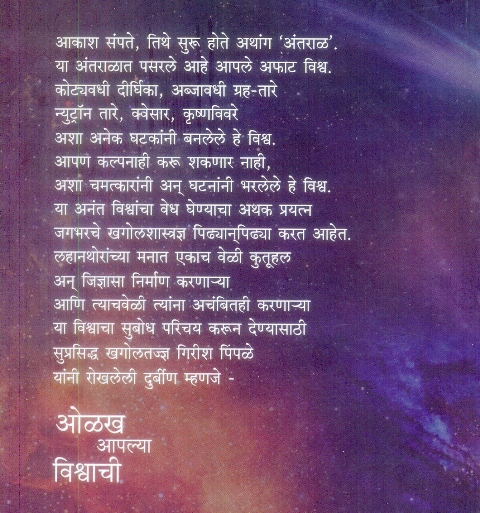 आकाश संपते, तिथे सुरू होते अथांग ‘अंतराळ’.
या अंतराळात पसरले आहे आपले अफाट विश्व.
कोट्यवधी दीर्घिका, अब्जावधी ग्रह-तारे
न्युट्रॉन तारे, क्वेसार, कृष्णविवरे
अशा अनेक घटकांनी बनलेले हे विश्व.
आपण कल्पनाही करू शकणार नाही,
अशा चमत्कारांनी अन् घटनांनी भरलेले हे विश्व.
या अनंत विश्वांचा वेध घेण्याचा अथक प्रयत्न
जगभरचे खगोलशास्त्रज्ञ पिढ्यान्‌पिढ्या करत आहेत.
लहानथोरांच्या मनात एकाच वेळी कुतूहल
अन् जिज्ञासा निर्माण करणाऱ्या
आणि त्याचवेळी त्यांना अचंबितही करणाऱ्या
या विश्वाचा सुबोध परिचय करून देण्यासाठी
सुप्रसिद्ध खगोलतज्ज्ञ गिरीश पिंपळे
यांनी रोखलेली दुर्बीण म्हणजे -
ओळख
आपल्या
विश्वाची